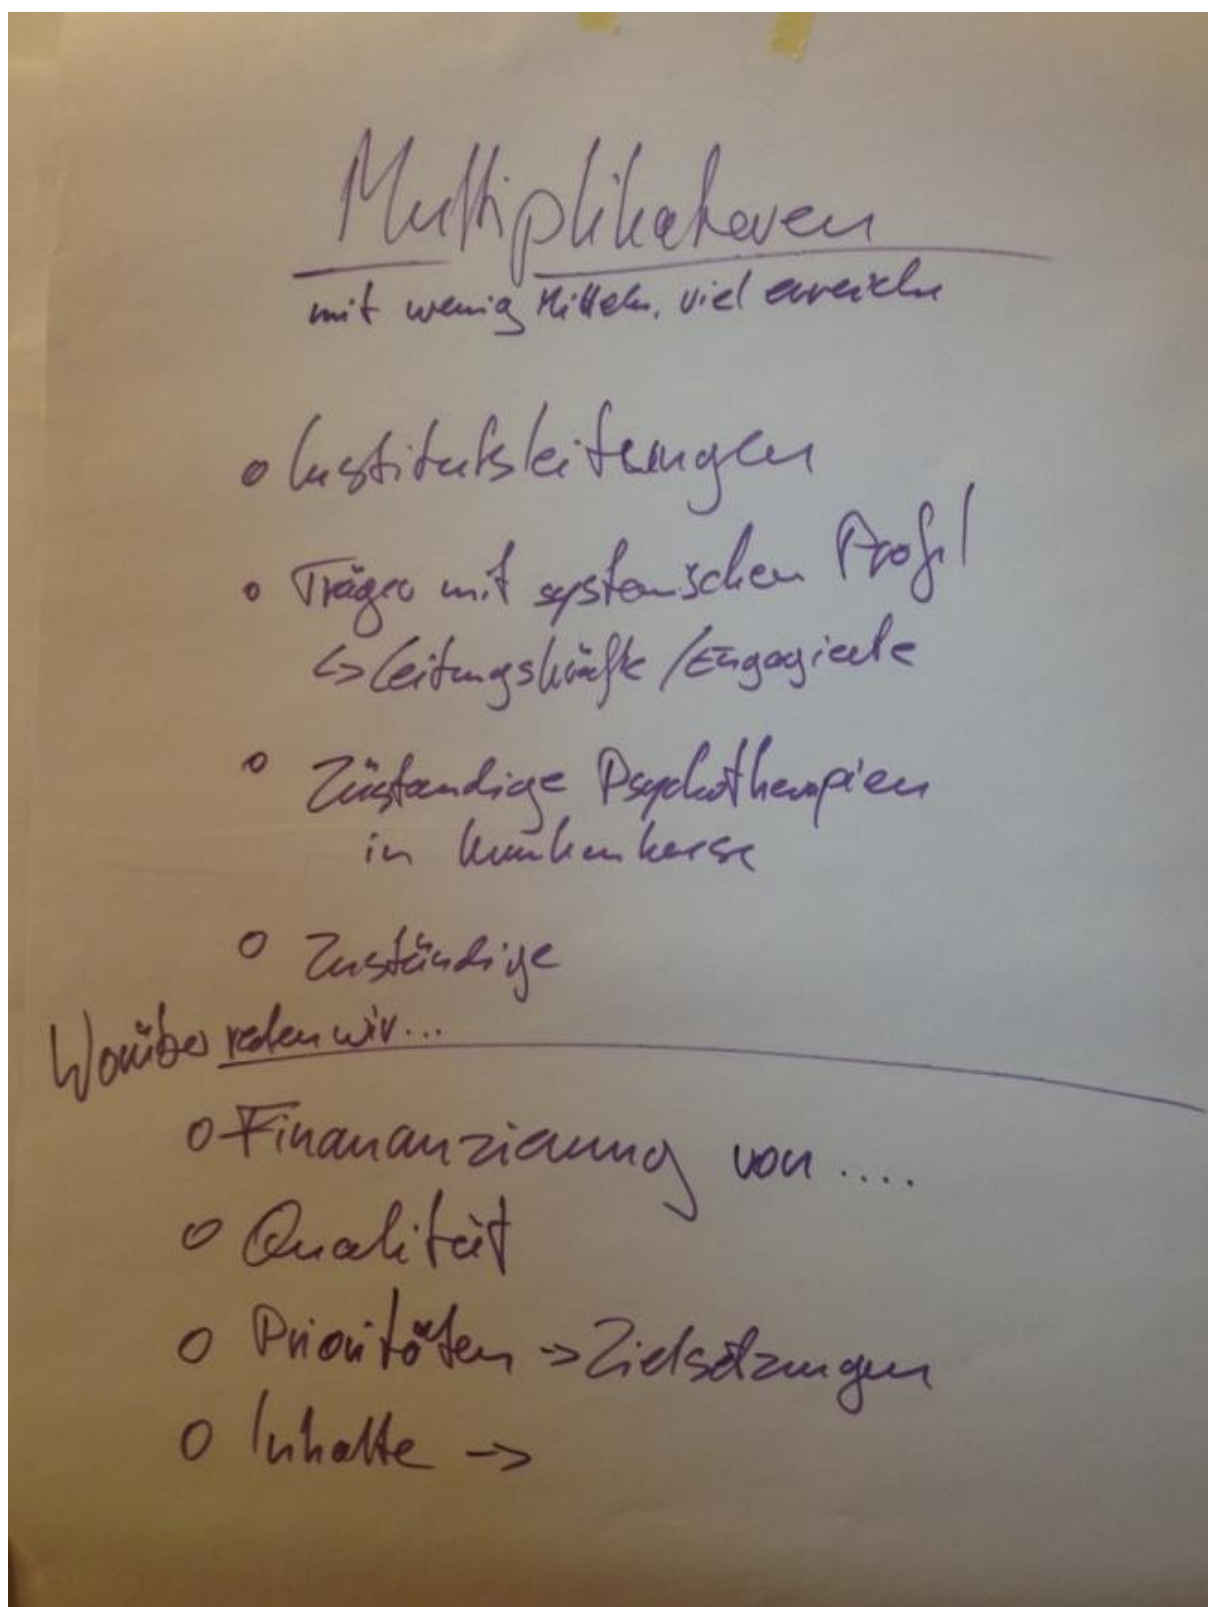 Multiplikatoren
mit wenig Mitteln, viel erreichen
o Institutsleitungen
o Träger mit systemischen Profil
↳ Leitungskräfte / Engagierte
o Zuständige Psychotherapien
in Krankenkasse
o Zuständige
Worüber reden wir...
o Finananzierung von ....
o Qualität
o Prioritäten -> Zielsetzungen
o Inhalte ->